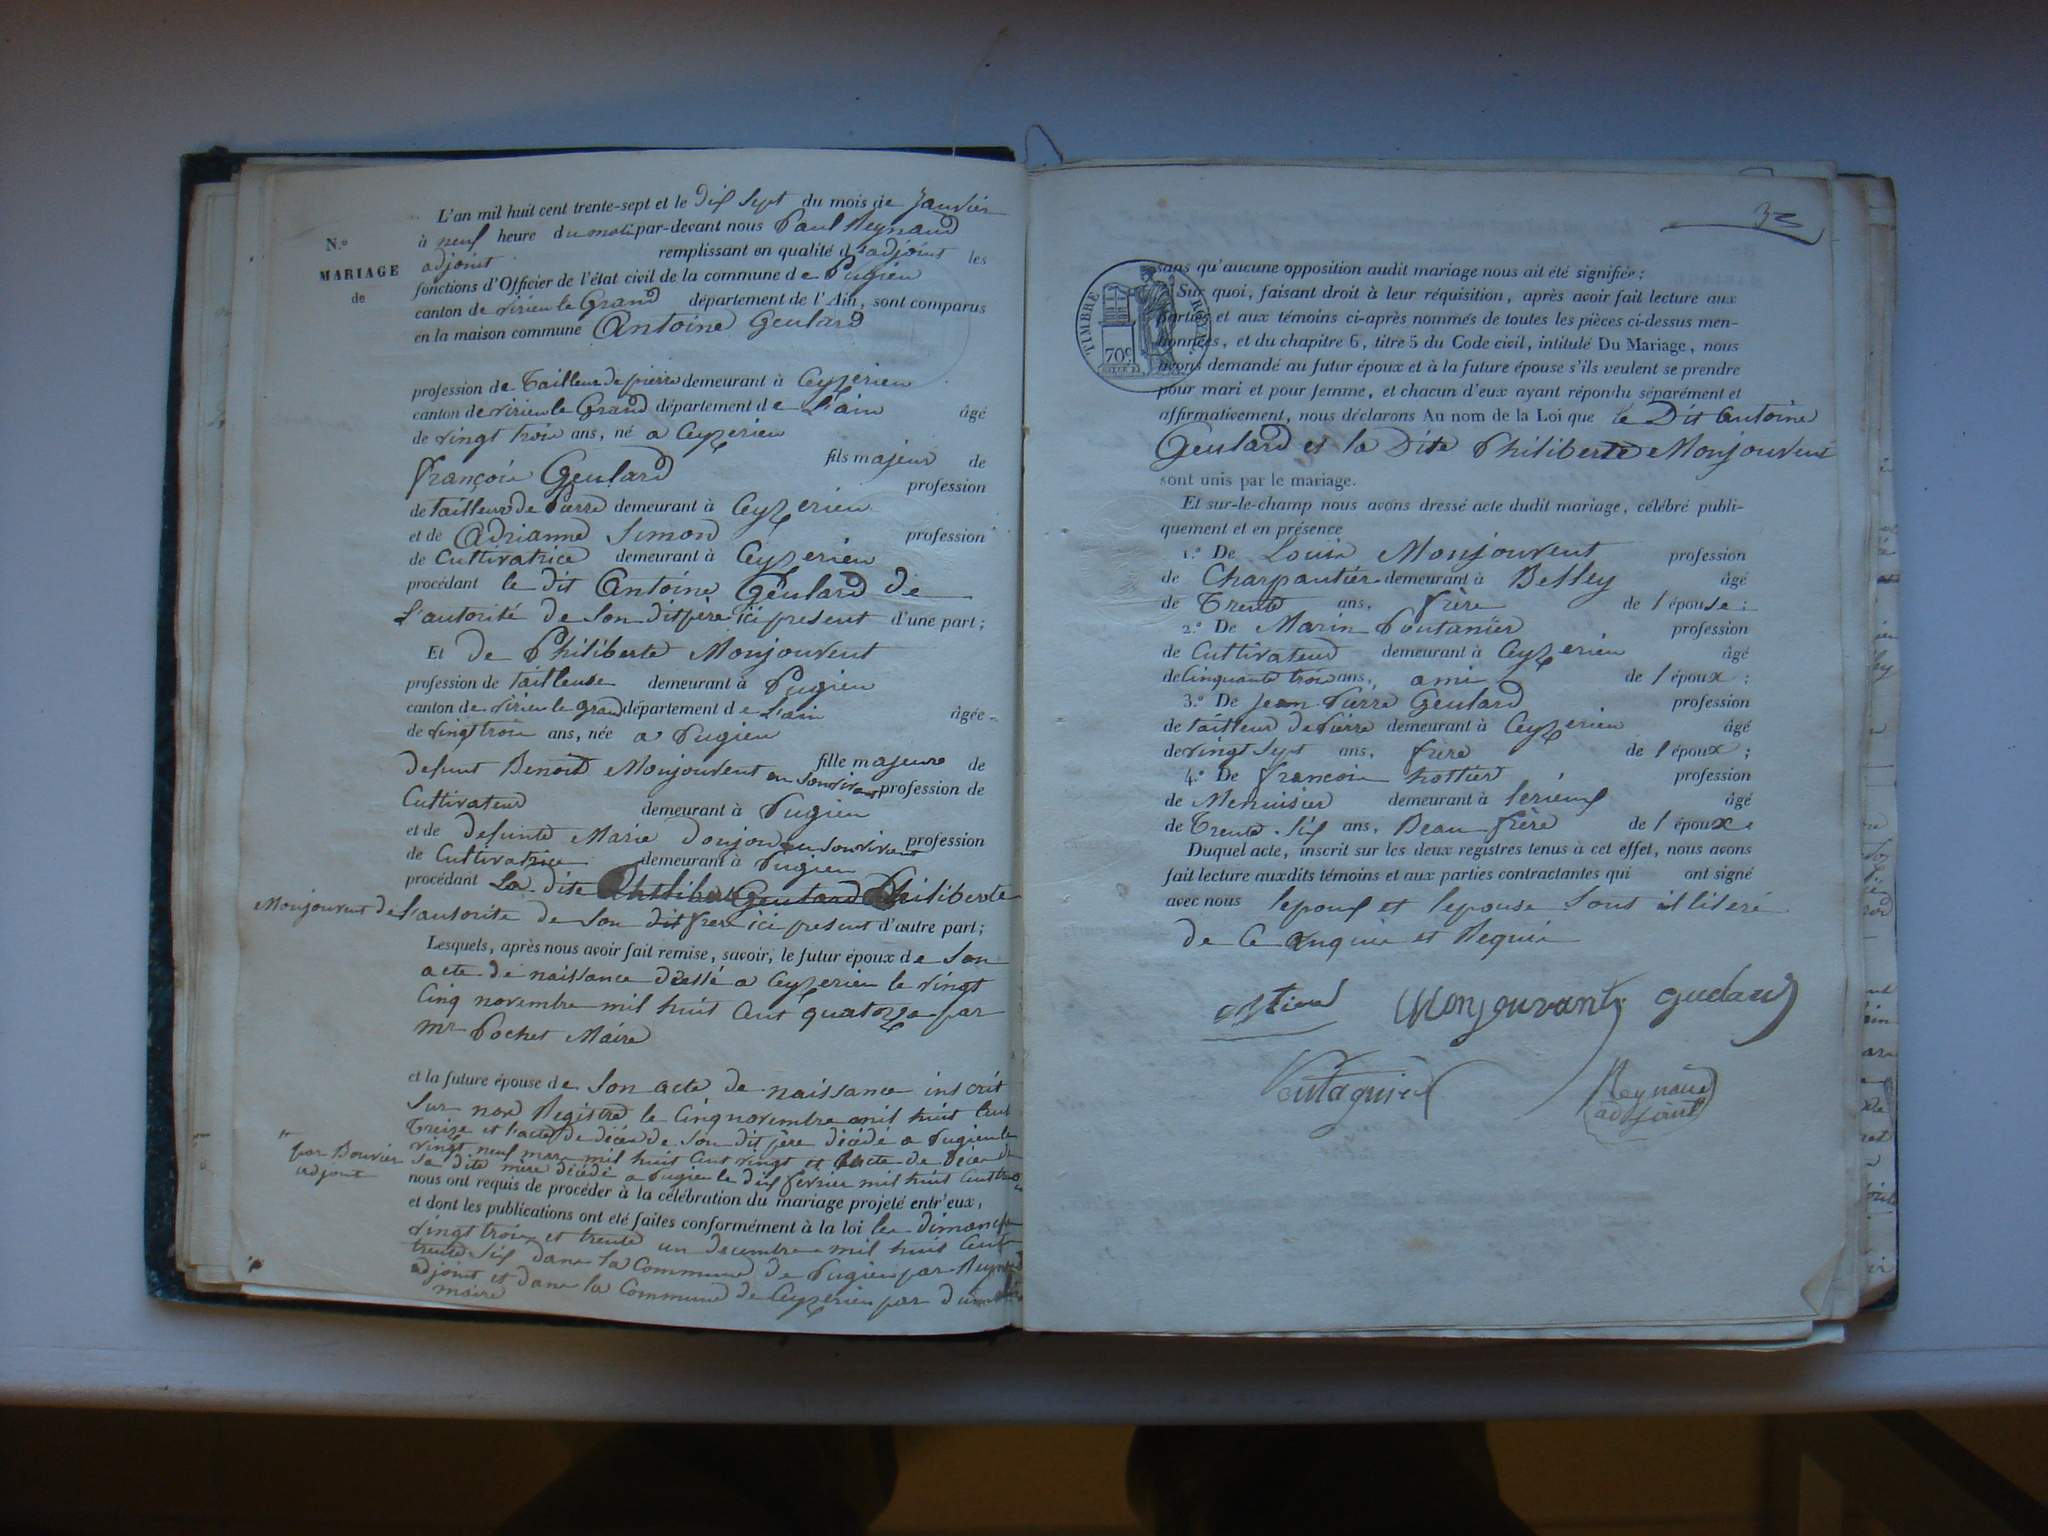 N.º
MARIAGE
de
L'an mil huit cent trente-sept et le Dix Sept du mois de Janvier
à neuf heure du matin par-devant nous Paul Reynaud
adjoint remplissant en qualité d'adjoint les
fonctions d'Officier de l'état civil de la commune de Pugieu
canton de virieu le Grand département de l'Ain, sont comparus
en la maison commune Antoine Geulard
profession de Tailleur de pierre demeurant à Ceyzerieu
canton de virieu le Grand département de L'ain âgé
de vingt trois ans, né a Ceyzerieu
fils majeur de
françois Geulard profession
de tailleur de Pierre demeurant à Ceyzerieu
et de Adrianne Simond profession
de Cultivatrice demeurant à Ceyzerieu
procédant le dit Antoine Geulard de
L'autorité de Son dit père ici present d'une part;
Et de Philiberte Monjouvent
profession de tailleuse demeurant à Pugieu
canton de virieu le grand département de L'ain âgée
de vingt trois ans, née a Pugieu
fille majeure de
defunt Benoit Monjouvent en Son vivant profession de
Cultivateur demeurant à Pugieu
et de defunte Marie Donjon en son vivant profession
de Cultivatrice demeurant à Pugieu
procédant La dite Philiberte Geulard Philiberte
Monjouvent de L'autorité de Son dit frere ici present d'autre part;
Lesquels, après nous avoir fait remise, savoir, le futur époux de Son
acte de naissance dressé a Ceyzerieu le vingt
Cinq novembre mil huit Cent quatorze par
mr Pochet Maire
et la future épouse de Son acte de naissance inscrit
Sur nos Registre le Cinq novembre mil huit Cent
Treize et l'acte de décès de Son dit père décédé a Pugieu le
vingt neuf mars mil huit Cent vingt et Lacte de Décès de
Sa dite mère décédé a Pugieu le dix février mil huit Cent
par Bouvier
adjoint
nous ont requis de procéder à la célébration du mariage projeté entr'eux,
et dont les publications ont été faites conformément à la loi les dimanche
vingt trois et trente un decembre mil huit Cent
trente Six dans la Commune de Pugieu par Reynaud
adjoint et dans la Commune de Ceyzerieu par
maire
32
TIMBRE ROYAL
70c.
sans qu'aucune opposition audit mariage nous ait été signifiée;
Sur quoi, faisant droit à leur réquisition, après avoir fait lecture aux
parties et aux témoins ci-après nommés de toutes les pièces ci-dessus men-
tionnées, et du chapitre 6, titre 5 du Code civil, intitulé Du Mariage, nous
avons demandé au futur époux et à la future épouse s'ils veulent se prendre
pour mari et pour femme, et chacun d'eux ayant répondu séparément et
affirmativement, nous déclarons Au nom de la Loi que le Dit Antoine
Geulard et la Dite Philiberte Monjouvent
sont unis par le mariage.
Et sur-le-champ nous avons dressé acte dudit mariage, célébré publi-
quement et en présence
1.º De Louis Monjouvent profession
de Charpantier demeurant à Belley âgé
de Trente ans, frère de l'épouse;
2.º De Marin Poutanier profession
de Cultivateur demeurant à Ceyzerieu âgé
de Cinquante trois ans, ami de l'époux;
3.º De Jean Pierre Geulard profession
de tailleur de Pierre demeurant à Ceyzerieu âgé
de vingt Sept ans, frère de l'époux;
4.º De françois hottier profession
de Menuisier demeurant à âgé
de Trente Six ans, Beau frère de l'époux
Duquel acte, inscrit sur les deux registres tenus à cet effet, nous avons
fait lecture auxdits témoins et aux parties contractantes qui ont signé
avec nous lepoux et lepouse Sont illiteré
de Ce anquis et Requis
Monjouvant gudard
Reynaud
adjoint